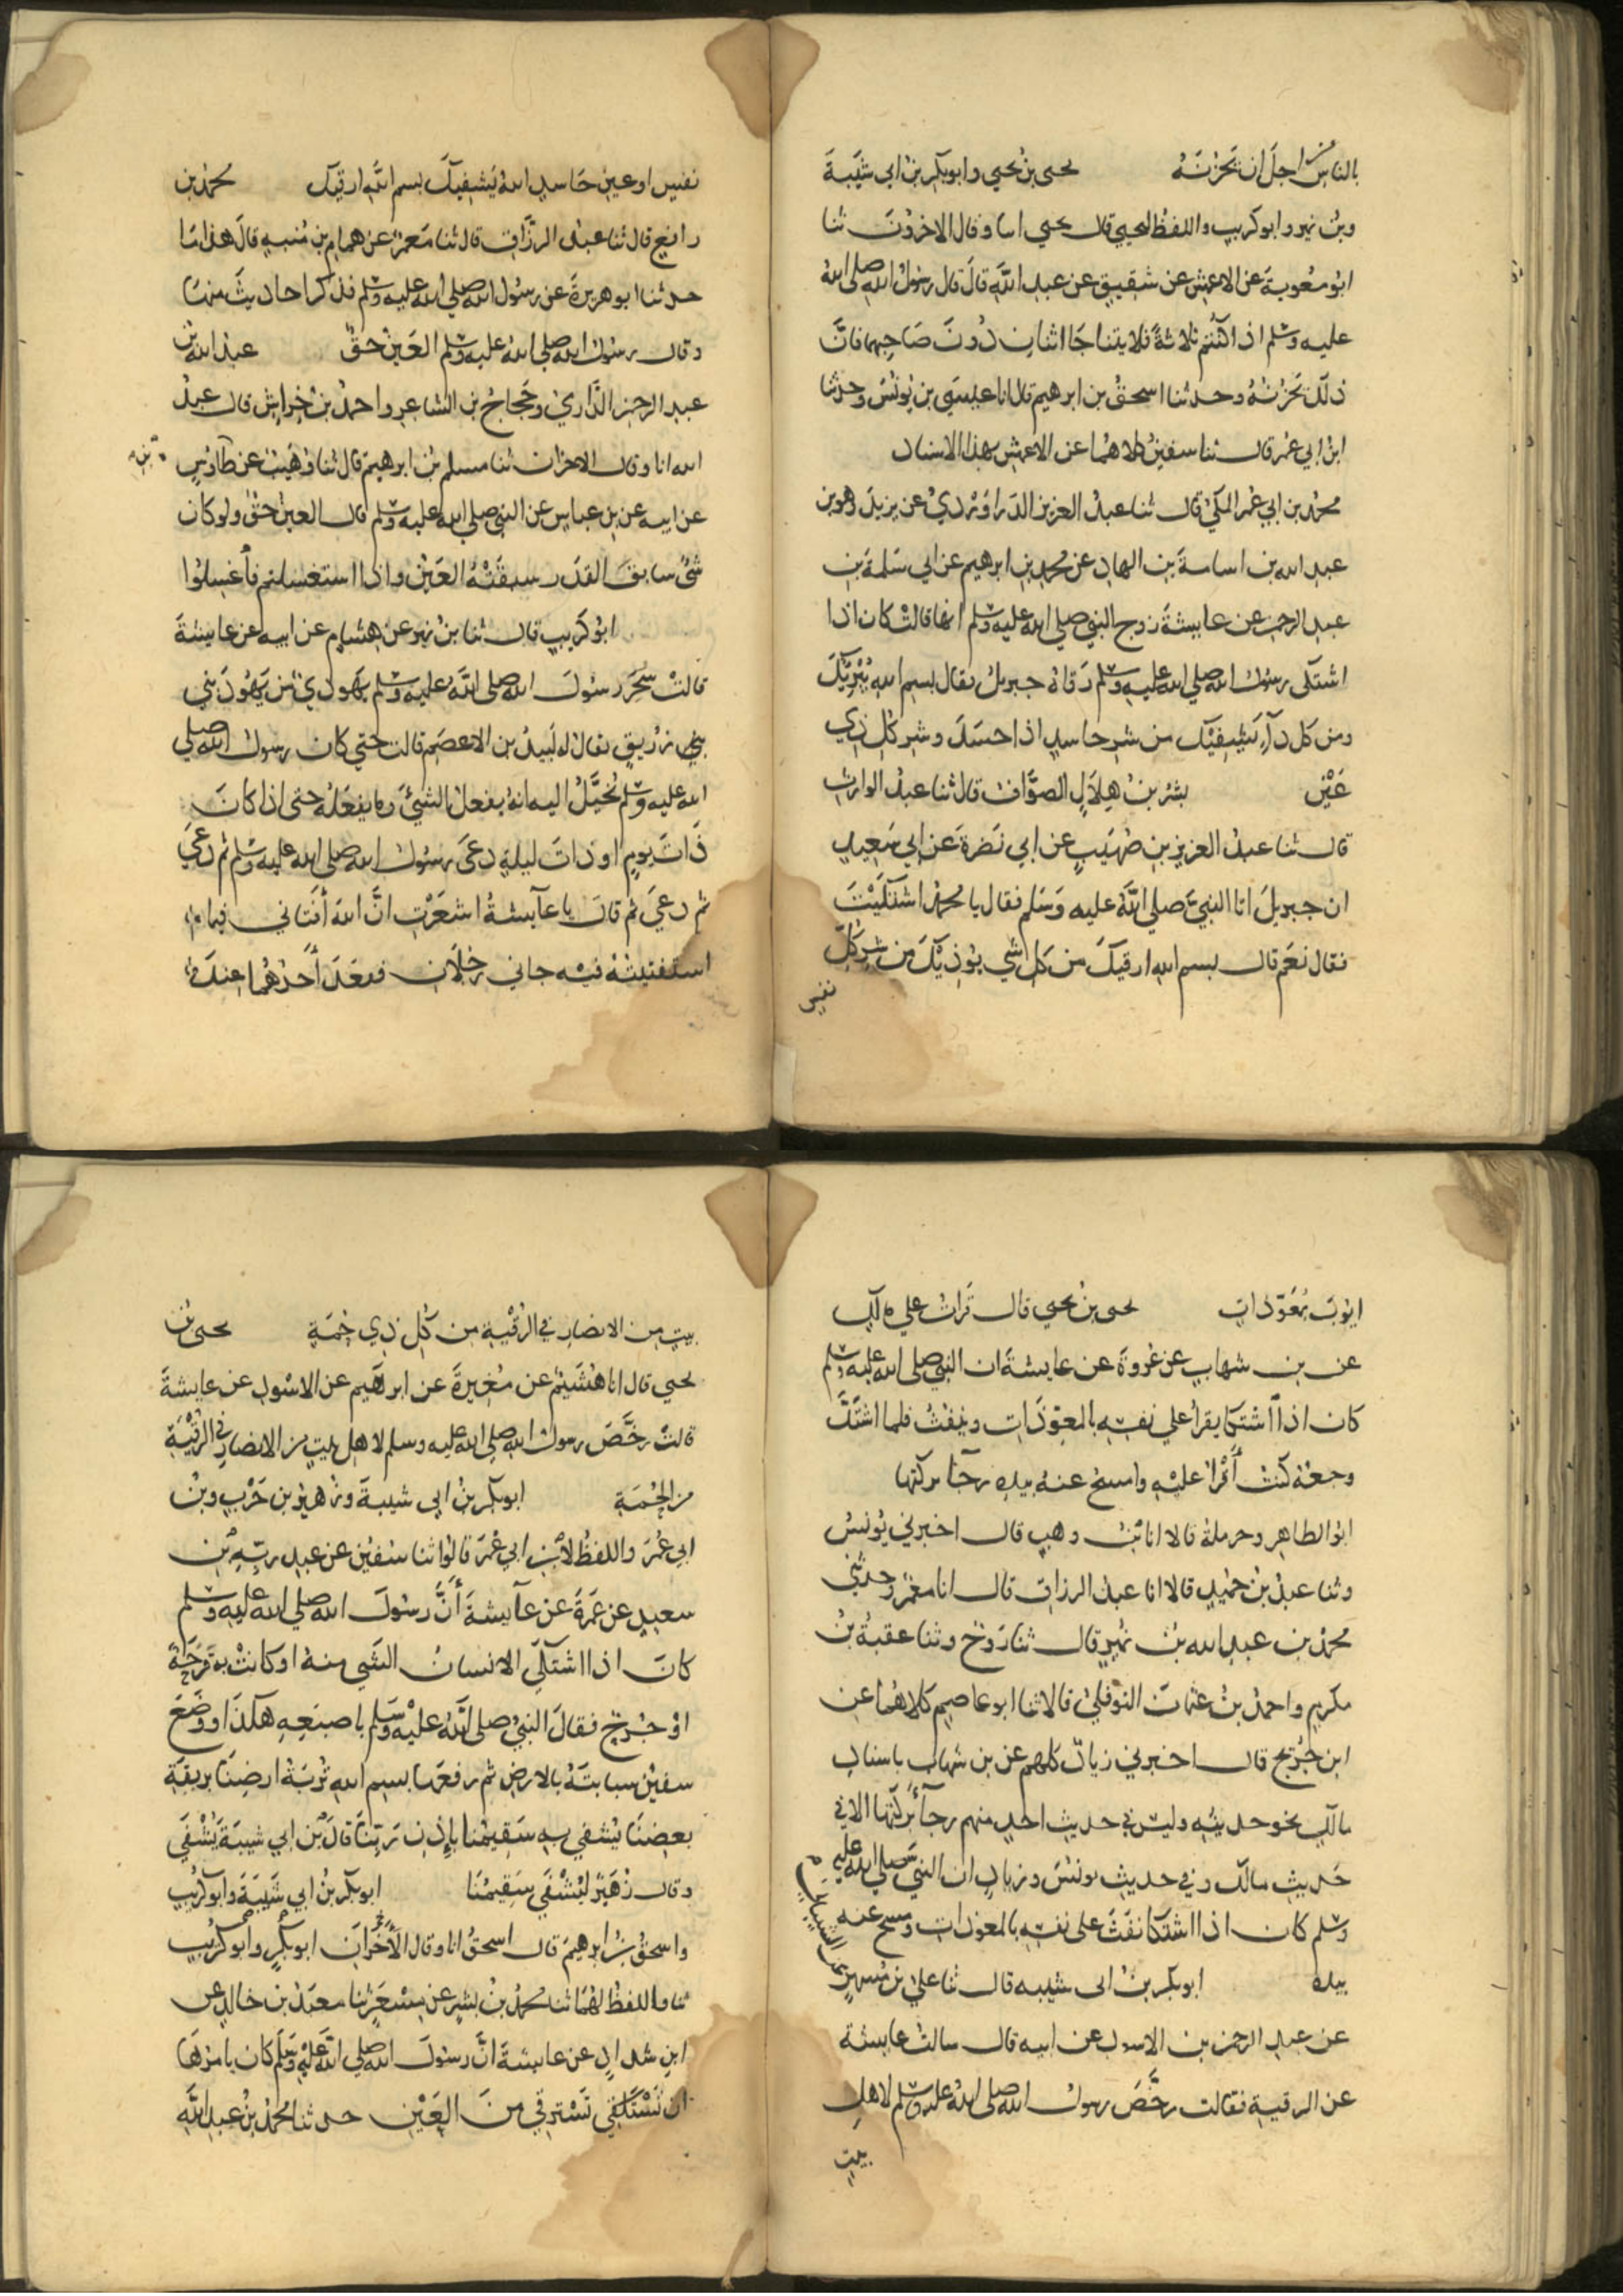 بالناس من اجل ان تحزنه يحيى بن يحيي وابوبكر بن ابي شَيْبَةَ
وبن نمير وابو كريب واللفظ ليحيي قال يحيي انا وقال الاخرون ثنا
ابو معوية عن الاعمش عن شقيق عن عبد الله قال قال رسول الله صلى الله
عليه وسلم اذا كنتم ثلاثة فلا يتناجا اثنان دون صاحبهما فان
ذلك يحزنه وحدثنا اسحق بن ابرهيم قال انا عيسى بن يونس وحدثنا
ابن ابي عمر قال ثنا سفين كلاهما عن الاعمش بهذا الاسناد
محمد بن ابي عمر المكي قال ثنا عبد العزيز الدراوردي عن يزيد وهو بن
عبد الله بن اسامة بن الهاد عن محمد بن ابرهيم عن ابي سلمة بن
عبد الرحمن عن عايشة زوج النبي صلي الله عليه وسلم انها قالت كان اذا
اشتكى رسول الله صلي الله عليه وسلم رقاه جبريل فقال بسم الله يُبْرِيْكَ
ومن كل دآء يشفيك من شر حاسد اذا حسد وشر كل ذي
عَيْن بشر بن هلال الصواف قال ثنا عبد الوارث
قال ثنا عبد العزيز بن صهيب عن ابي نضرة عن ابي سعيد
ان جبريل اتا النبي صلي الله عليه وسلم فقال يا محمد اشتكيت
فقال نعم قال بسم الله ارقيك من كل شي يوذيك من شر كل
نفس
نفس او عين حاسد الله يشفيك بسم الله ارقيك محمد بن
رافع قال ثنا عبد الرزاق قال ثنا معمر عن همام بن منبه قال هذا ما
حدثنا ابو هريرة عن رسول الله صلي الله عليه وسلم فذكر احاديث منها
وقال رسول الله صلي الله عليه وسلم العين حق عبد الله بن
عبد الرحمن الداري وحجاج بن الشاعر واحمد بن خراش قال عبد
الله انا وقال الاخران ثنا مسلم بن ابرهيم قال ثنا وهيب عن طاوس
عن ابيه عن بن عباس عن النبي صلي الله عليه وسلم قال العين حق ولو كان
شئ سابق القدر سبقته العين واذا استغسلتم فاغسلوا
ابو كريب قال ثنا بن نمير عن هشام عن ابيه عن عايشة
قالت سحر رسول الله صلى الله عليه وسلم يهودي من يهود بني
بني زريق يقال له لبيد بن الاعصم قالت حتي كان رسول الله صلي
الله عليه وسلم يخيل اليه انه يفعل الشئ وما يفعله حتى اذا كان
ذات يوم او ذات ليلة دعى رسول الله صلي الله عليه وسلم ثم دعي
ثم دعي ثم قال يا عآيشة اشعرت ان الله أفتاني فيما
استفتيته فيه جاني رجلان فقعد أحدهما عند
ايوب بمعوذات يحيى بن يحيي قال قرات علي مالك
عن بن شهاب عن عروة عن عايشة ان النبي صلى الله عليه وسلم
كان اذا اشتكا يقرا علي نفسه بالمعوذات وينفث فلما اشتد
وجعه كنت أقرا عليه وامسح عنه بيده رجآ بركتها
ابو الطاهر وحرملة قالا انا بن وهب قال اخبرني يونس
وثنا عبد بن حميد قالا انا عبد الرزاق قال انا معمر وحدثني
محمد بن عبد الله بن نمير قال ثنا روح وثنا عقبة بن
مكرم واحمد بن عثمان النوفلي قالا ثنا ابو عاصم كلاهما عن
ابن جريج قال اخبرني زياد كلهم عن بن شهاب باسناد
مالك نحو حديثه وليس في حديث احد منهم رجآء بركتها الا في
حديث مالك وفي حديث يونس وزياد ان النبي صلي الله عليه
وسلم كان اذا اشتكا نفث على نفسه بالمعوذات ومسح عنه
بيده ابوبكر بن ابي شيبه قال ثنا علي بن مسهر
عن الشيباني
عن عبد الرحمن بن الاسود عن ابيه قال سالت عايشة
عن الرقية فقالت رخص رسول الله صلى الله عليه وسلم لاهل
بيت
بيت من الانصار في الرقية من كل ذي حمة يحيى بن
يحيي قال انا هشيم عن مغيرة عن ابرهيم عن الاسود عن عايشة
قالت رخص رسول الله صلى الله عليه وسلم لاهل بيت من الانصار في الرقية
من الحمة ابوبكر بن ابي شيبة وزهير بن حرب وبن
ابي عمر واللفظ لابن ابي عمر قالوا ثنا سفين عن عبد ربه بن
سعيد عن عمرة عن عآيشة أن رسول الله صلي الله عليه وسلم
كان اذا اشتكي الانسان الشي منه او كانت به قرحة
او جرح فقال النبي صلى الله عليه وسلم باصبعه هكذا ووضع
سفين سبابته بالارض ثم رفعها بسم الله تربة ارضنا بريقة
بعضنا يشفي به سقيمنا بإذن ربنا قال بن ابي شيبة يشفى
وقال زهير ليشفى سقيمنا ابوبكر بن ابي شيبة وابو كريب
واسحق بن ابرهيم قال اسحق انا وقال الأخران ابو بكر وابو كريب
ثنا واللفظ لهما ثنا محمد بن بشر عن مسعر ثنا معبد بن خالد عن
ابن شداد عن عايشة ان رسول الله صلي الله عليه وسلم كان يامرها
ان تسترقي من العين حدثنا محمد بن عبد الله